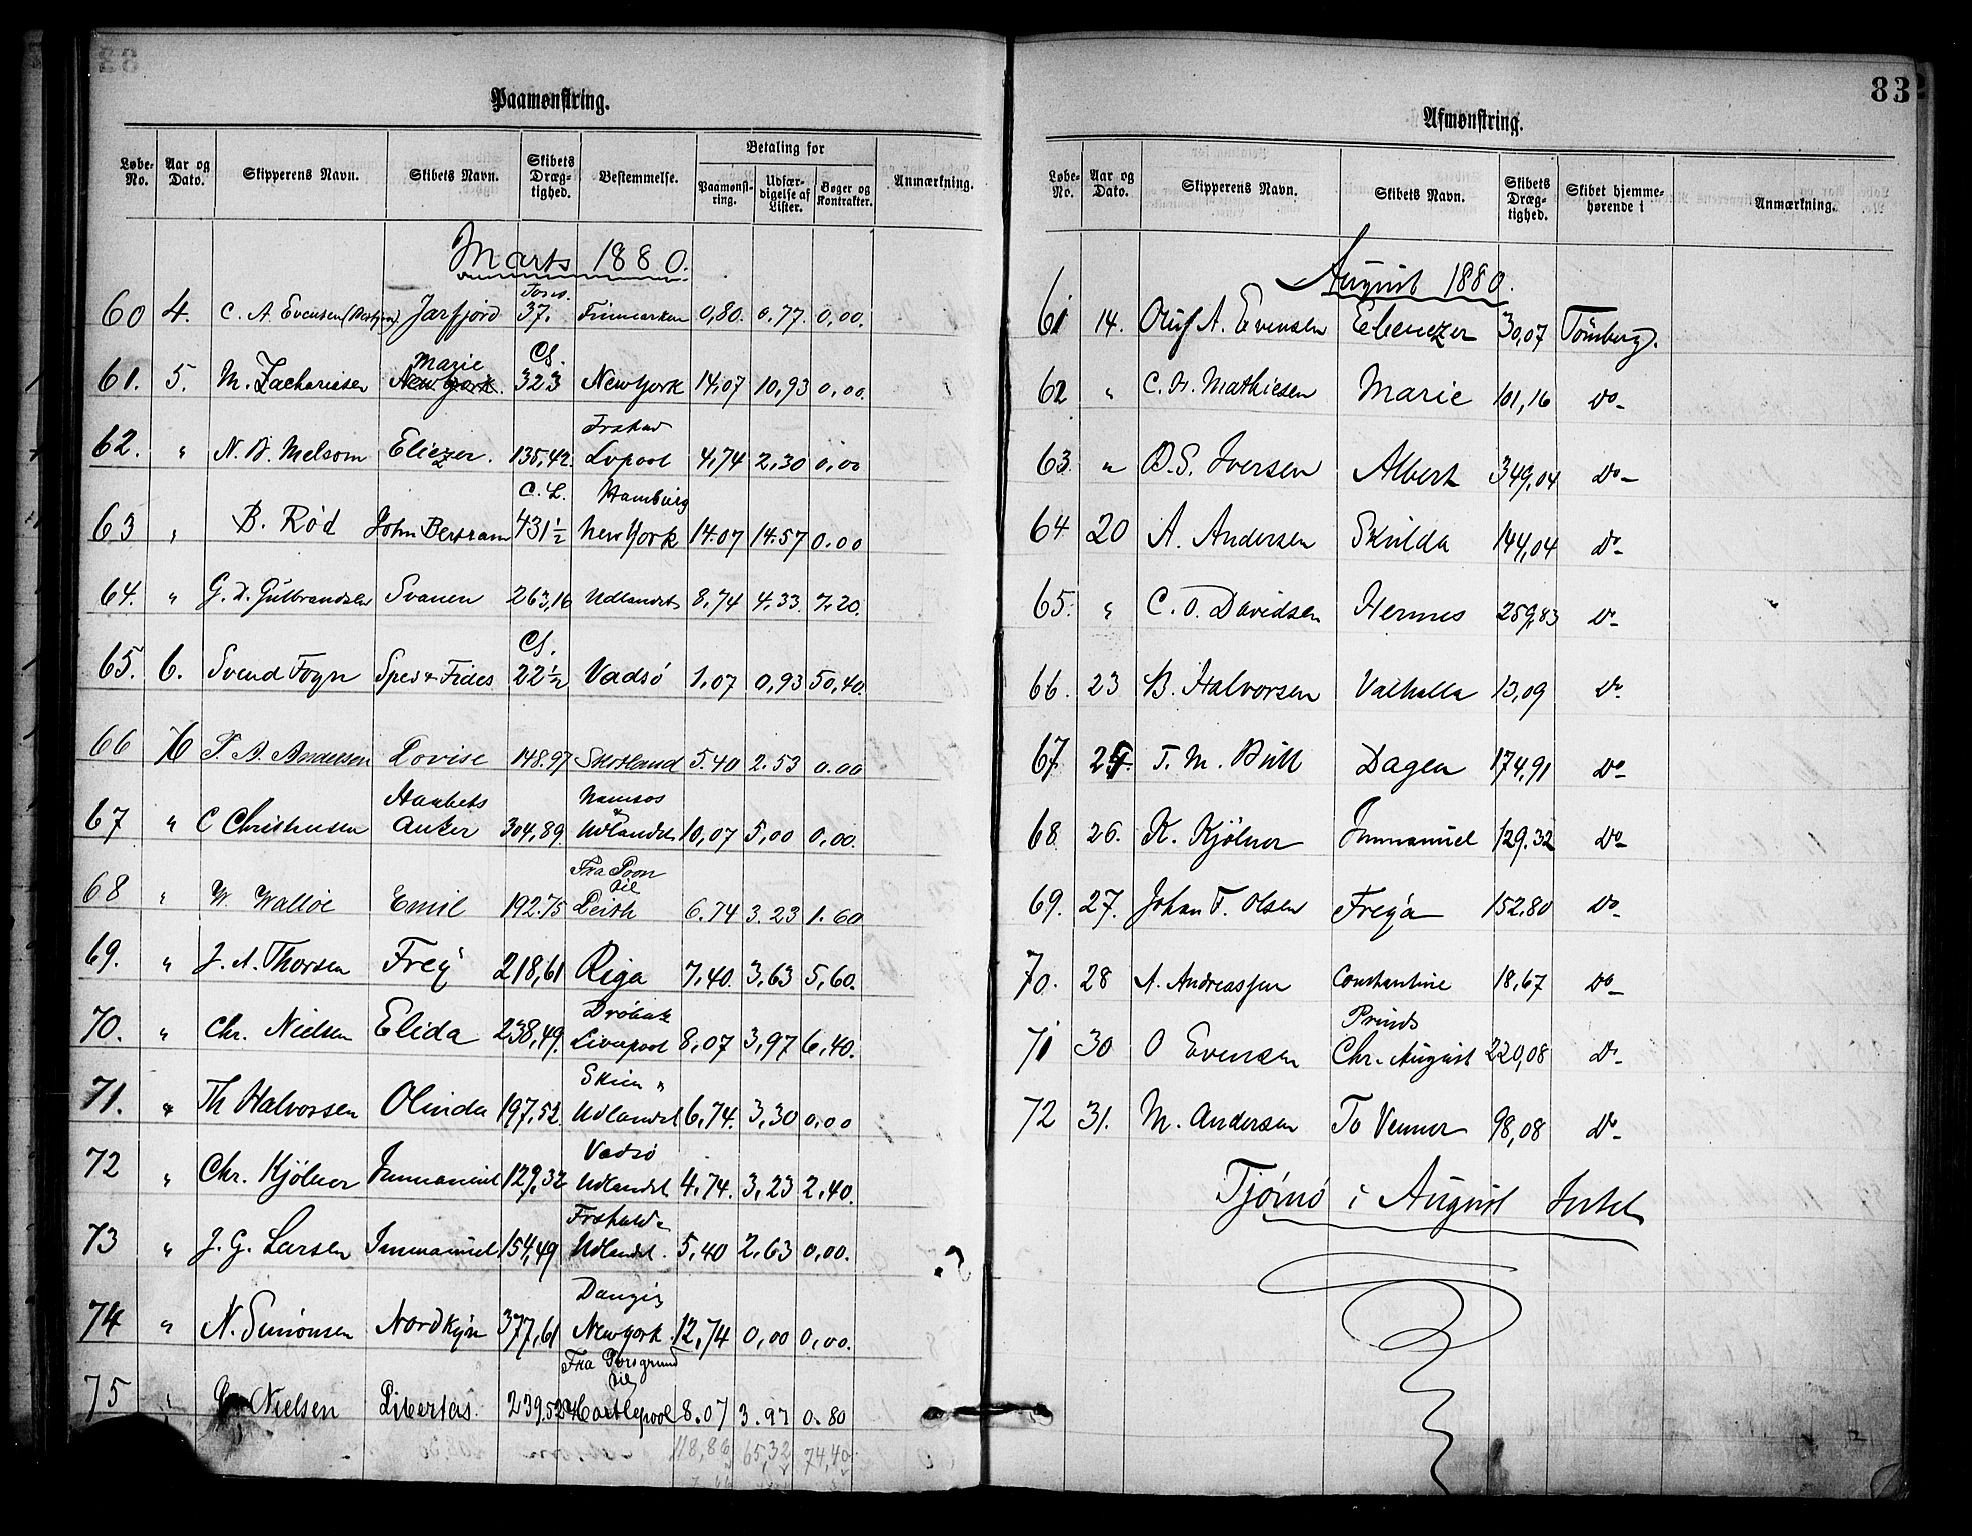 Paamønstring.
Løbe-No. Aar og Dato. Skipperens Navn. Skibets Navn. Skibets Dræg-tighed. Bestemmelse. Betaling for Paamønst-ring. Udfær-digelse af Lister. Bøger og Kontrakter. Anmærkning.
Marts 1880.
Tons.
60 4. C. A. Evensen Jarfjord 37. Finmarken 0,80. 0.77. 0,00.
Marie Cl.
61. 5. M. Zachariasen New York. 323 New York 14,07 10,93 0,00.
Frshav
62. " N. B. Melsom Eliezer. 135,42 Lvpool 4,74 2,30 0,00
C. L. Hamburg
63 " B. Rød John Bertram 431½ New York 14.07 14.57 0.00
64. " G. D. Gulbrandsen Svanen 263,16 Udlandet 8,74 4,33. 7,20.
Cl.
65. 6. Svend Foyn Spes & Fides 22½ Vadsø 1,07 0,93 50,40.
66 6 P. A. Andersen Lovise 148.97 Skotland 5.40 2.53 0.00
Haabets Namsos
67 " C Christensen Anker 304,89. & Udlandet 10,07 5,00 0,00.
Fra Poon til
68 " W. Walløe Emil 192.75 Leith 6.74 3.23 1.60
69. " J. A. Thorsen Frey 218,61 Riga 7,40. 3,63 5,60.
Drøbak
70. " Chr. Nielsen Elida 238,49. Liverpool 8,07 3,97 6,40.
Skien "
71. " Th Halvorsen Olinda 197,52. Udlandet 6,74. 3,30 0,00
Vadsø
72 " Chr. Kjølner Immanuel 129,32 Udlandet 4,74. 3,23 2,40.
Frshald &
73 " J. G. Larsen Immanuel 154,49 Udlandet. 5,40 2,63 0,00.
Danzig
74 " N. Simonsen Nordkyn 377,61 New York. 12,74 0,00 0,00.
Fra Porsgrund til
75 " Nielsen Libertas. 239.52 Hartlepool 8.07 3.97 0.80
118,86 65,32 74,40
83
Afmønstring.
Løbe-No. Aar og Dato. Skipperens Navn. Skibets Navn. Skibets Dræg-tighed. Skibet hjemme-hørende i Anmærkning.
August 1880.
61 14. Oluf A. Evensen Ebenezer 30,07 Tönsberg.
62 " C. H. Mathiesen Marie 101,16 do-
63 " O. S. Iversen Albert 349,04 do-
64 20 A. Andersen Skulda 144,04 do-
65. " C. O. Davidsen Hermes 259,83 do-
66. 23 B. Halvorsen Valhalla 13,09 do-
67. 24. T. M. Bull Dagen 174,91 do-
68 26. K. Kjølner Immanuel 129.32 do-
69. 27. Johan F. Olsen Freya 152,80 do-
70. 28 A. Andreassen Constantine 18,67 do-
Prinds
71 30 O Evensen Chr. August 220,08 do-
72 31. M. Andersen To Venner 98,08 do-
Tjømø i August Intet